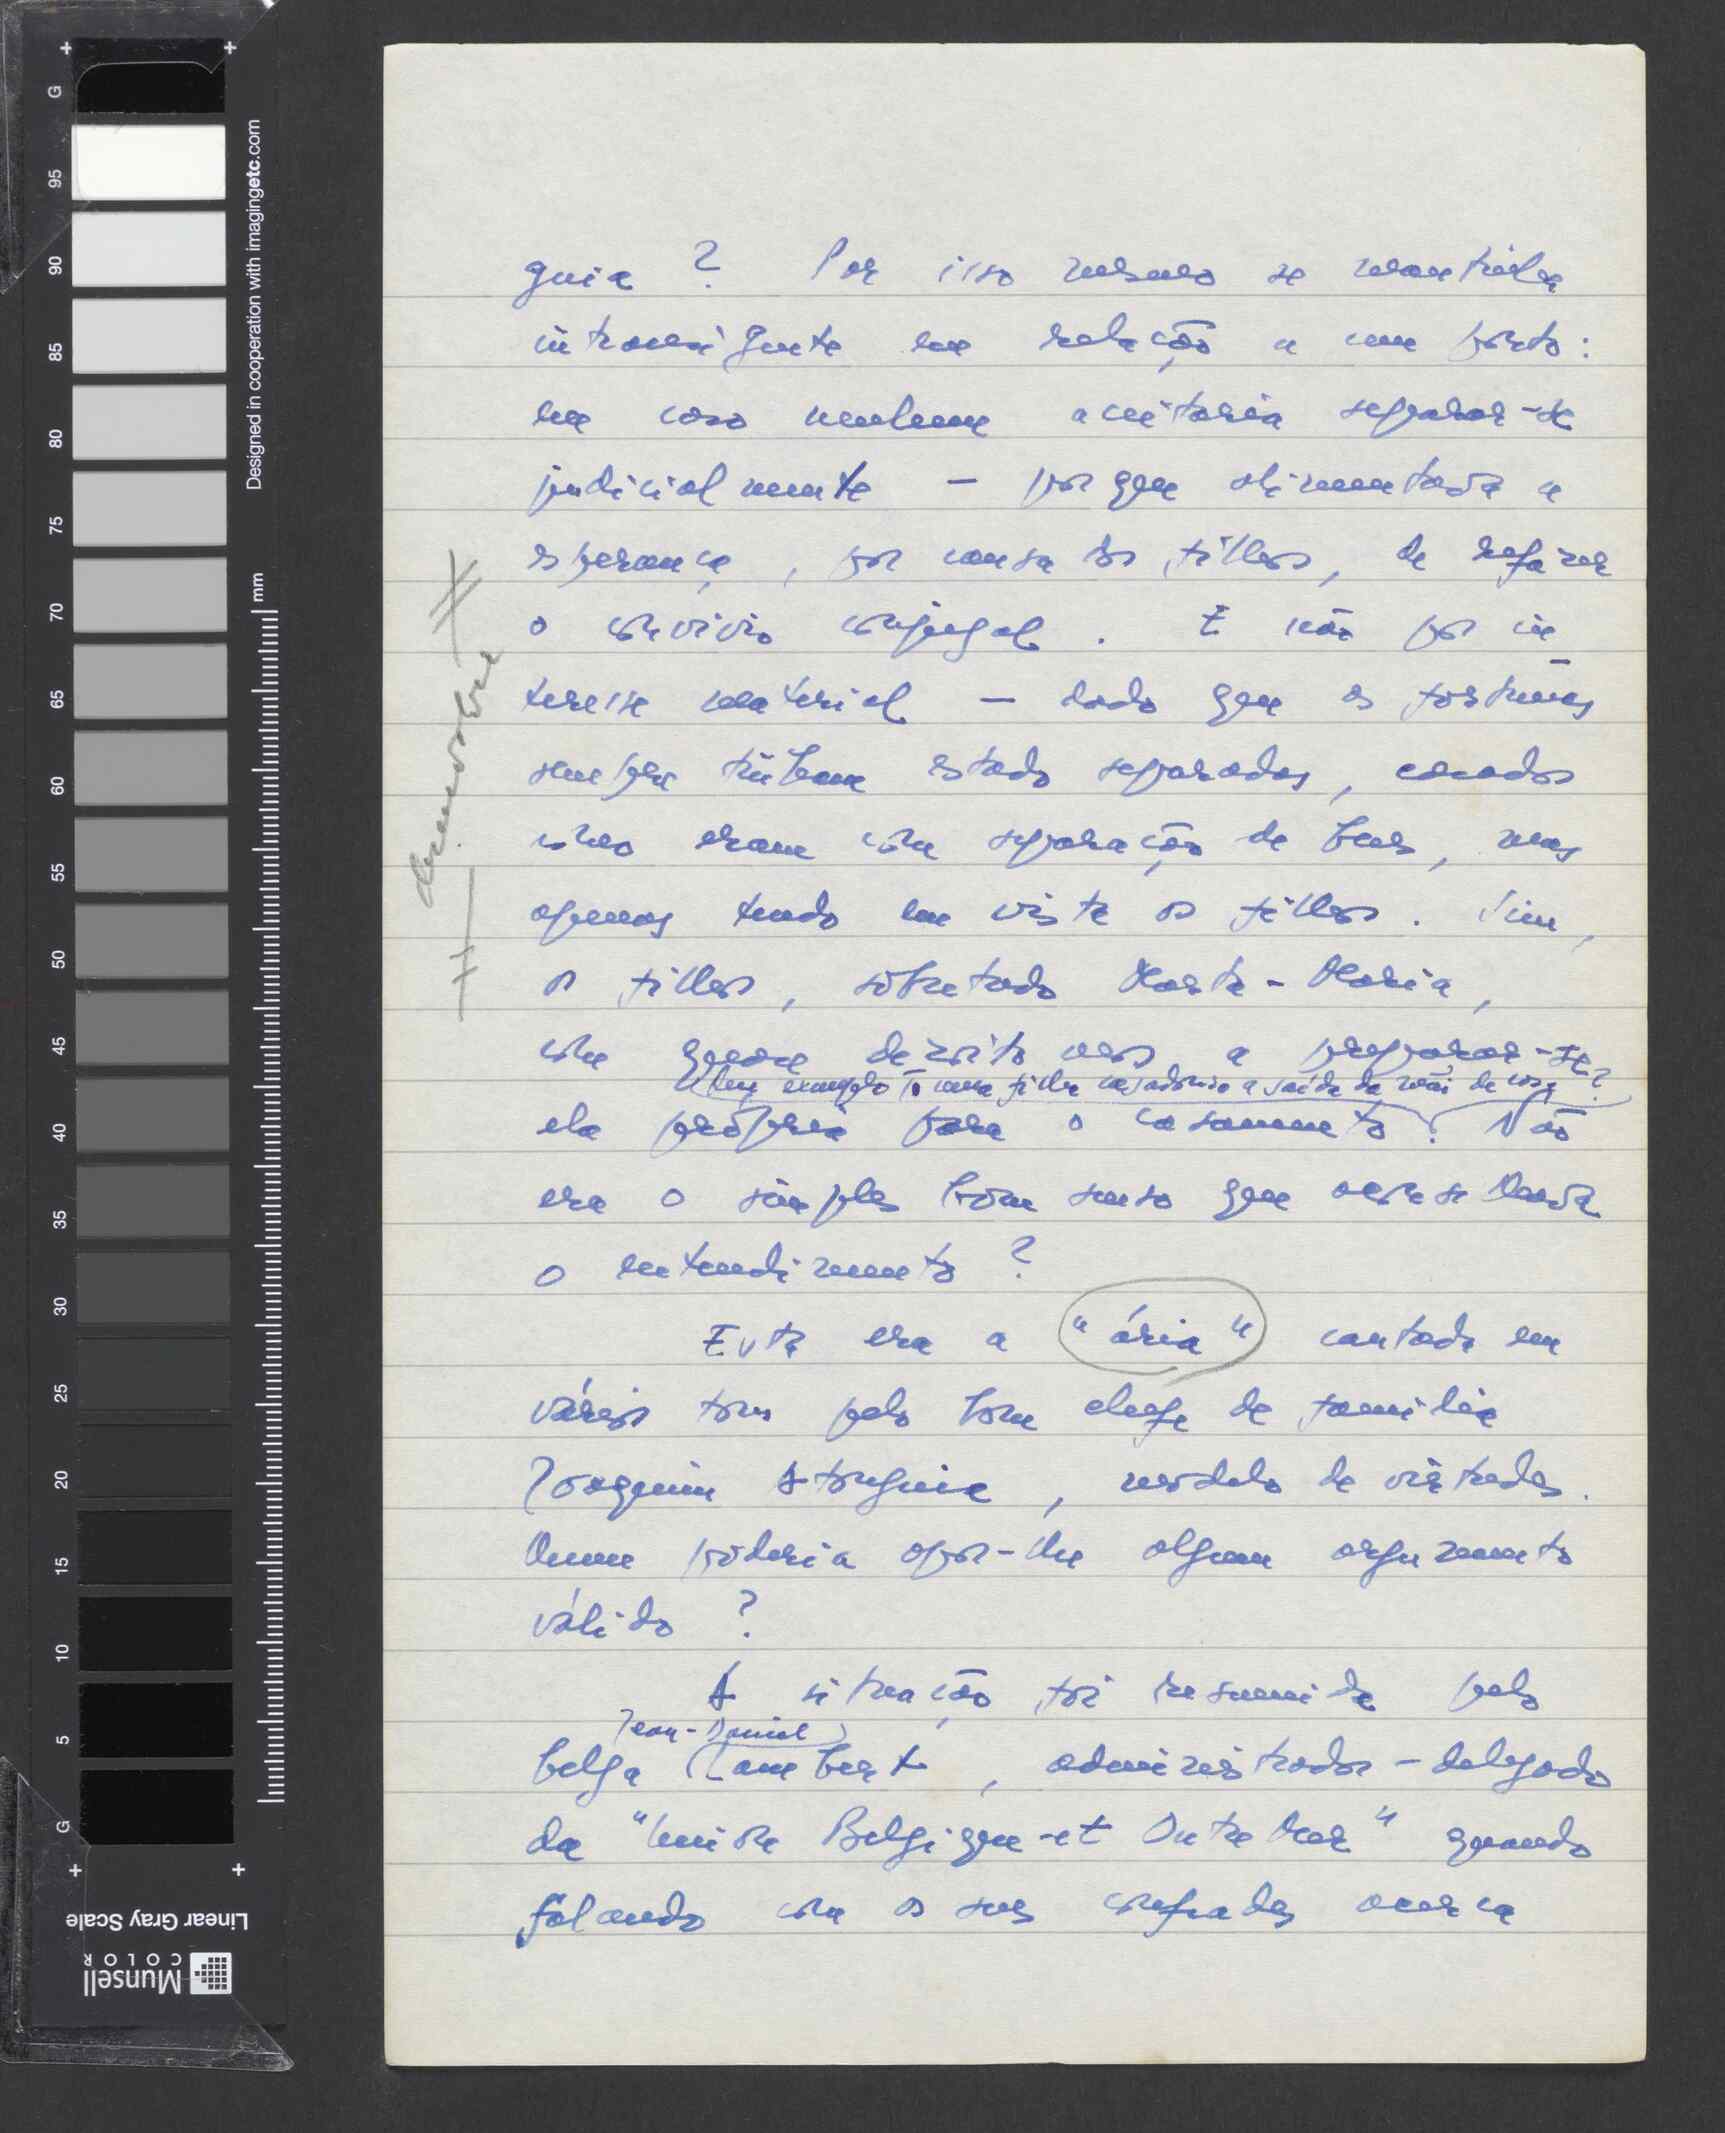 guia ? Por isso mesmo se mantinha
intransigente em relação a um ponto:
em caso nenhum aceitaria separar-se
judicialmente — porque alimentava a
esperança, por causa dos filhos, de refazer
o convívio conjugal. E não por in
teresse material — dado que as fortunas
sempre tinham estado separadas, casados
como eram com separação de bens, mas
apenas tendo em vista os filhos. Sim,
os filhos, sobretudo Marta-Maria,
com quase dezoito anos, a preparar-se
Um exemplo a uma filha casadoira a saída da mãe de casa?
ela própria para o casamento? Não
era o simples bom senso que aconselhava
o entendimento ?
Esta era a "ária" cantada em
vários tons pelo bom chefe de família
Joaquim Atouguia, modelo de virtudes.
Quem poderia opor-lhe algum argumento
válido ?
A situação foi resumida pelo
Jean-Daniel
belga Lambert, administrador-delegado
da "Union Belgique-et Outre Mer" quando
falando com os seus confrades acerca
Designed in cooperation with imagingetc.com
mm
G
95
90
85
80
75
70
65
60
55
50
45
40
35
30
25
20
15
10
5
G
Linear Gray Scale
Munsell
COLOR